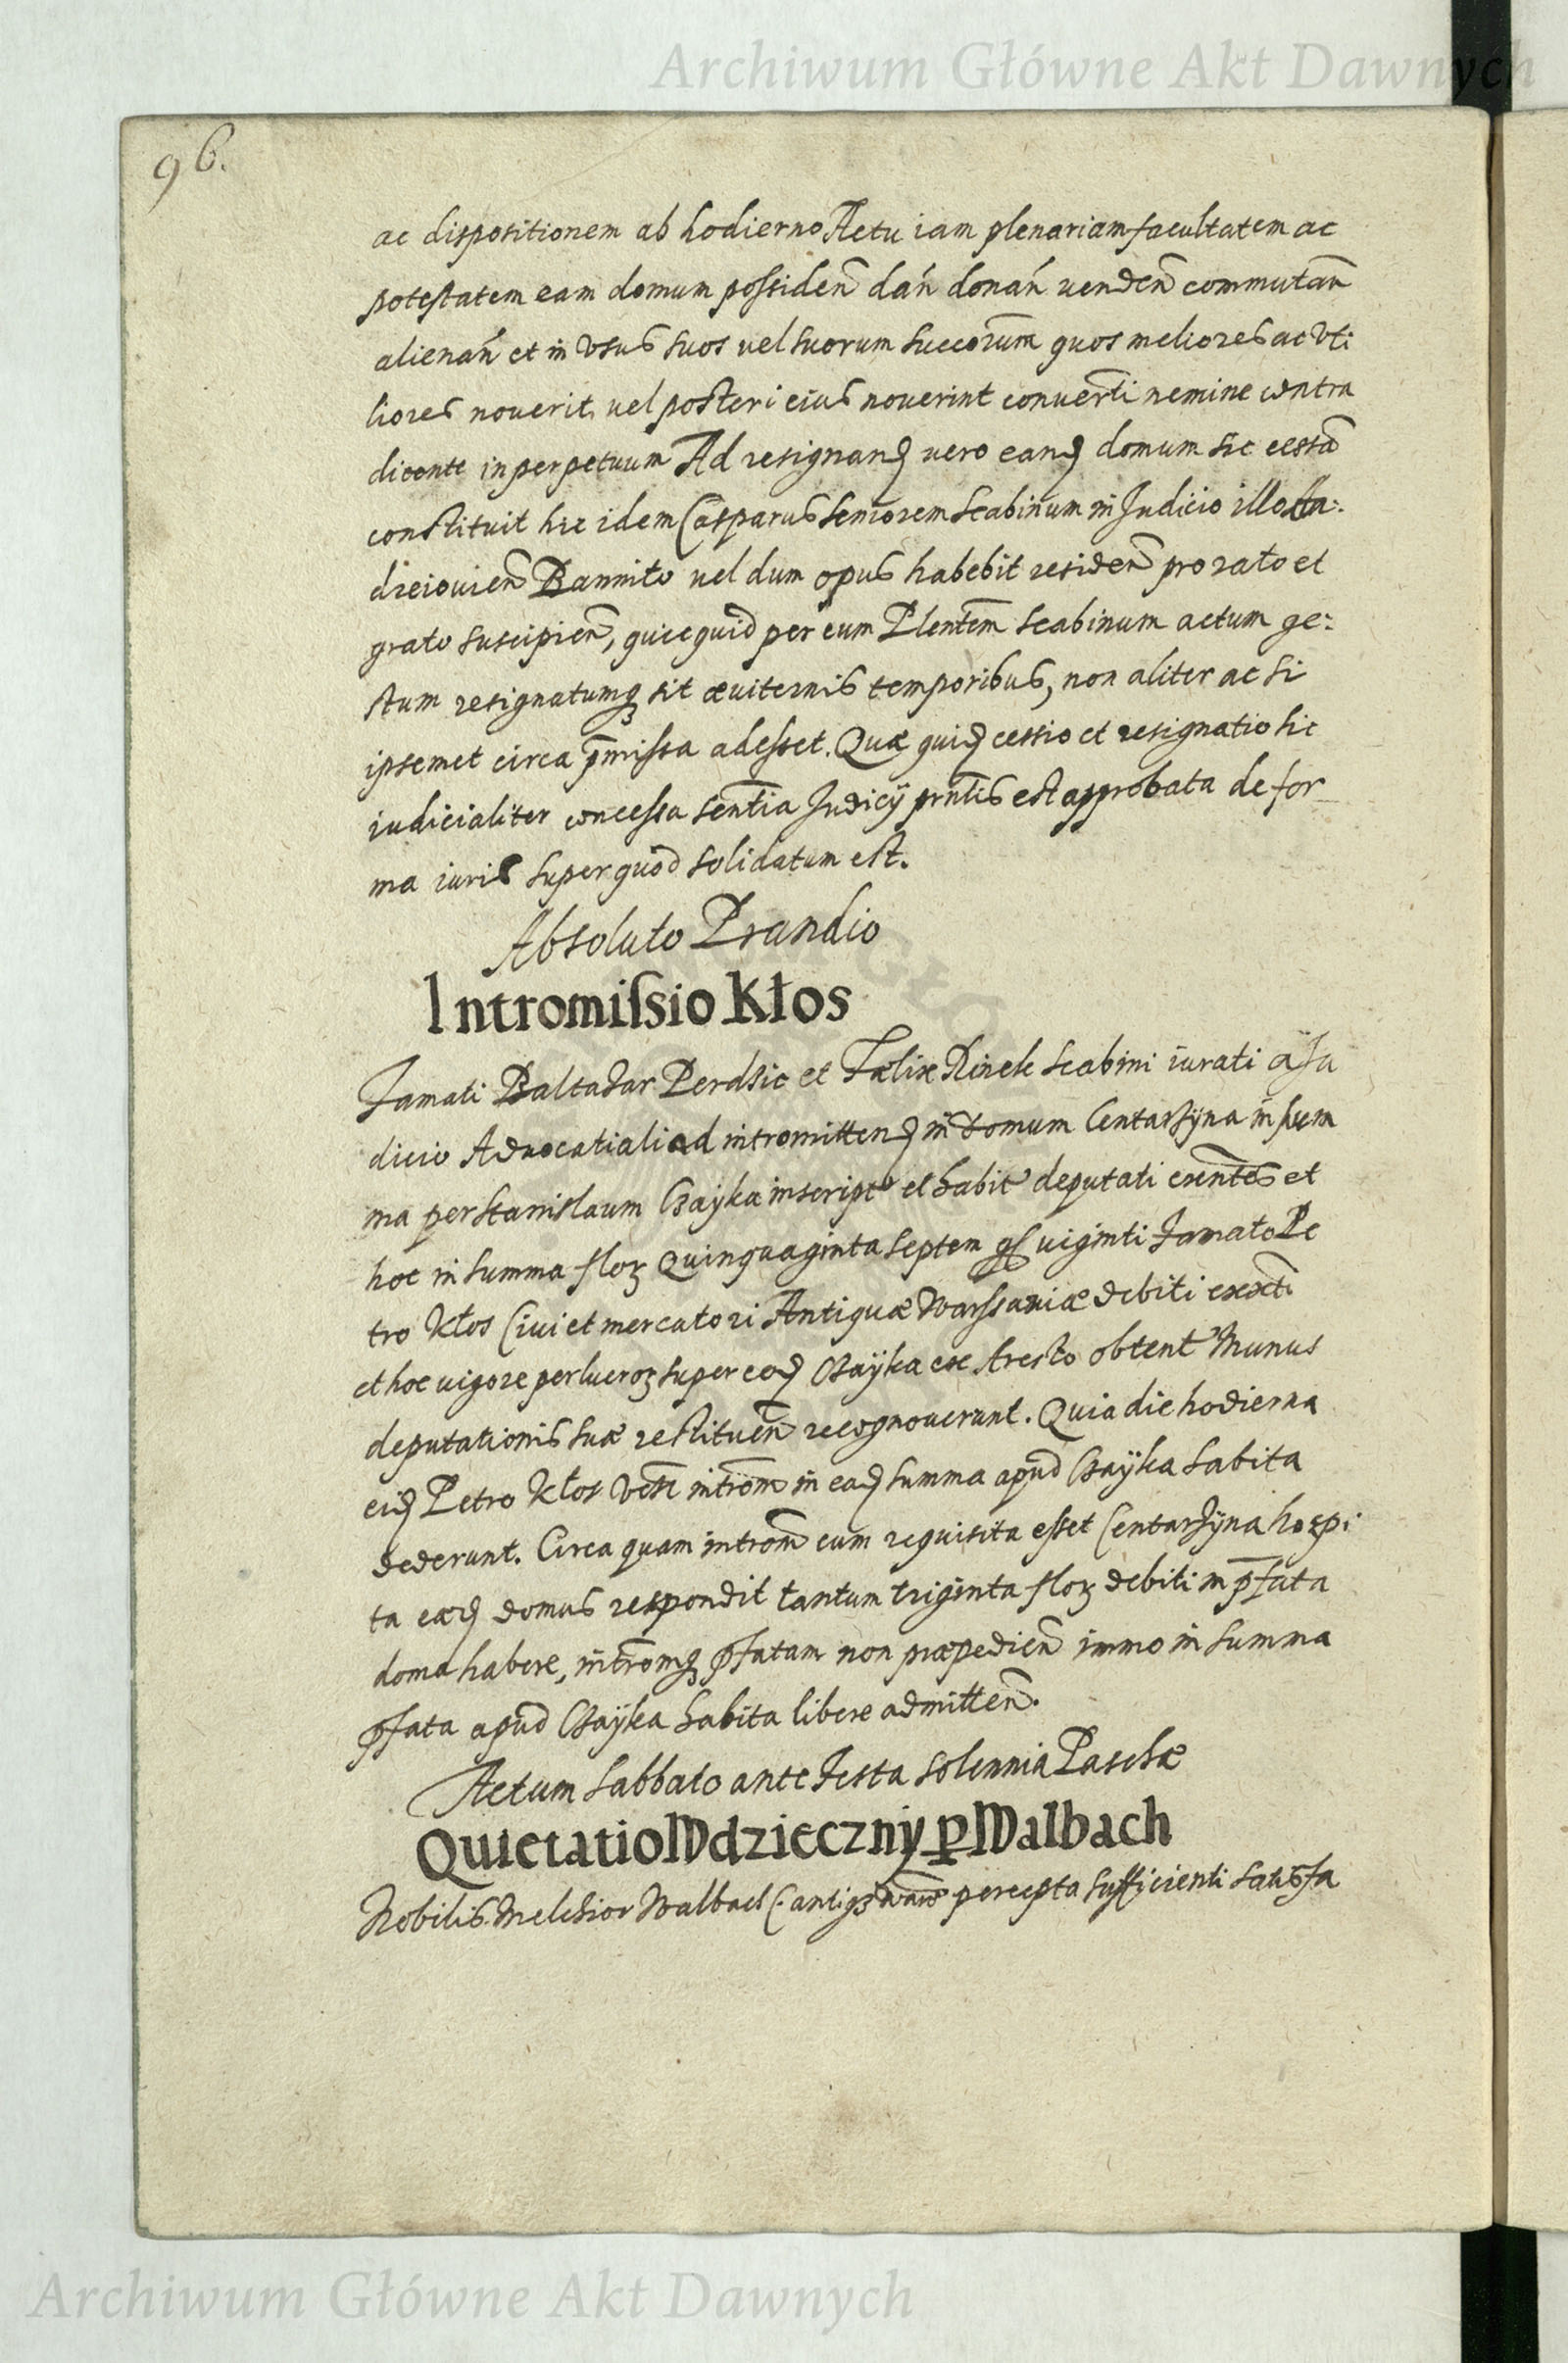 Archiwum Główne Akt Dawnych
96.
ac dispositionem ab hodierno Actu iam plenariam facultatem ac
potestatem eam domum possideñ dań donań uendeñ commutañ
alienań et in Vsus suos uel suorum succorum quos meliores ac Vti
liores nouerit uel posteri eius nouerint conuerti nemine contra
dicente in perpetuum Ad resignand uero eand domum sic cessã
constituit hic idem Casparus seniorem scabinum in Judicio illo
dzeiouieñ Bannito uel dum opus habebit resideñ pro rato et
grato suscipieñ, quicquid per eum Plentem scabinum actum ge:
stum resignatumq sit æuiternis temporibus, non aliter ac si
ipsemet circa pmissa adesset. Quæ quid cessio et resignatio sic
iudicialiter concessa sentia Judicij prntis est approbata de for
ma iuris super quod solidatum est.
Absoluto Prandio
Intromissio Kłos
Famati Baltazar Perdsic et Fælix Rinek scabini iurati a Ju
dicio Aduocatiali ad intromittend in domum Centarzyna in sum
ma per stanislaum Czayka inscript et habit deputati exentes et
hoc in summa flor Quinquaginta septem gs uiginti Famato Pe
tro Kłos Ciui et mercatori Antiquæ Warssauiæ debiti
et hoc uigore per lucror super eod Czayka ex Aresto obtent Munus
deputationis suæ restitueñ recognouerunt. Quia die hodierna
eid Petro Kłos introm in ead summa apud Czayka habita
dederunt. Circa quam introm cum requisita esset Centarzyna hospi
ta eard domus respondit tantum triginta flor debiti in pfata
doma habere, intromq pfatam non præpedieñ immo in summa
pfata apud Czayka habita libere admitteñ.
Actum sabbato ante Festa solennia Paschæ
Quietatio Wdzieczny p Walbach
Nobilis Melchior Walbach C. antiq percepta sufficienti satisfa
Archiwum Główne Akt Dawnych